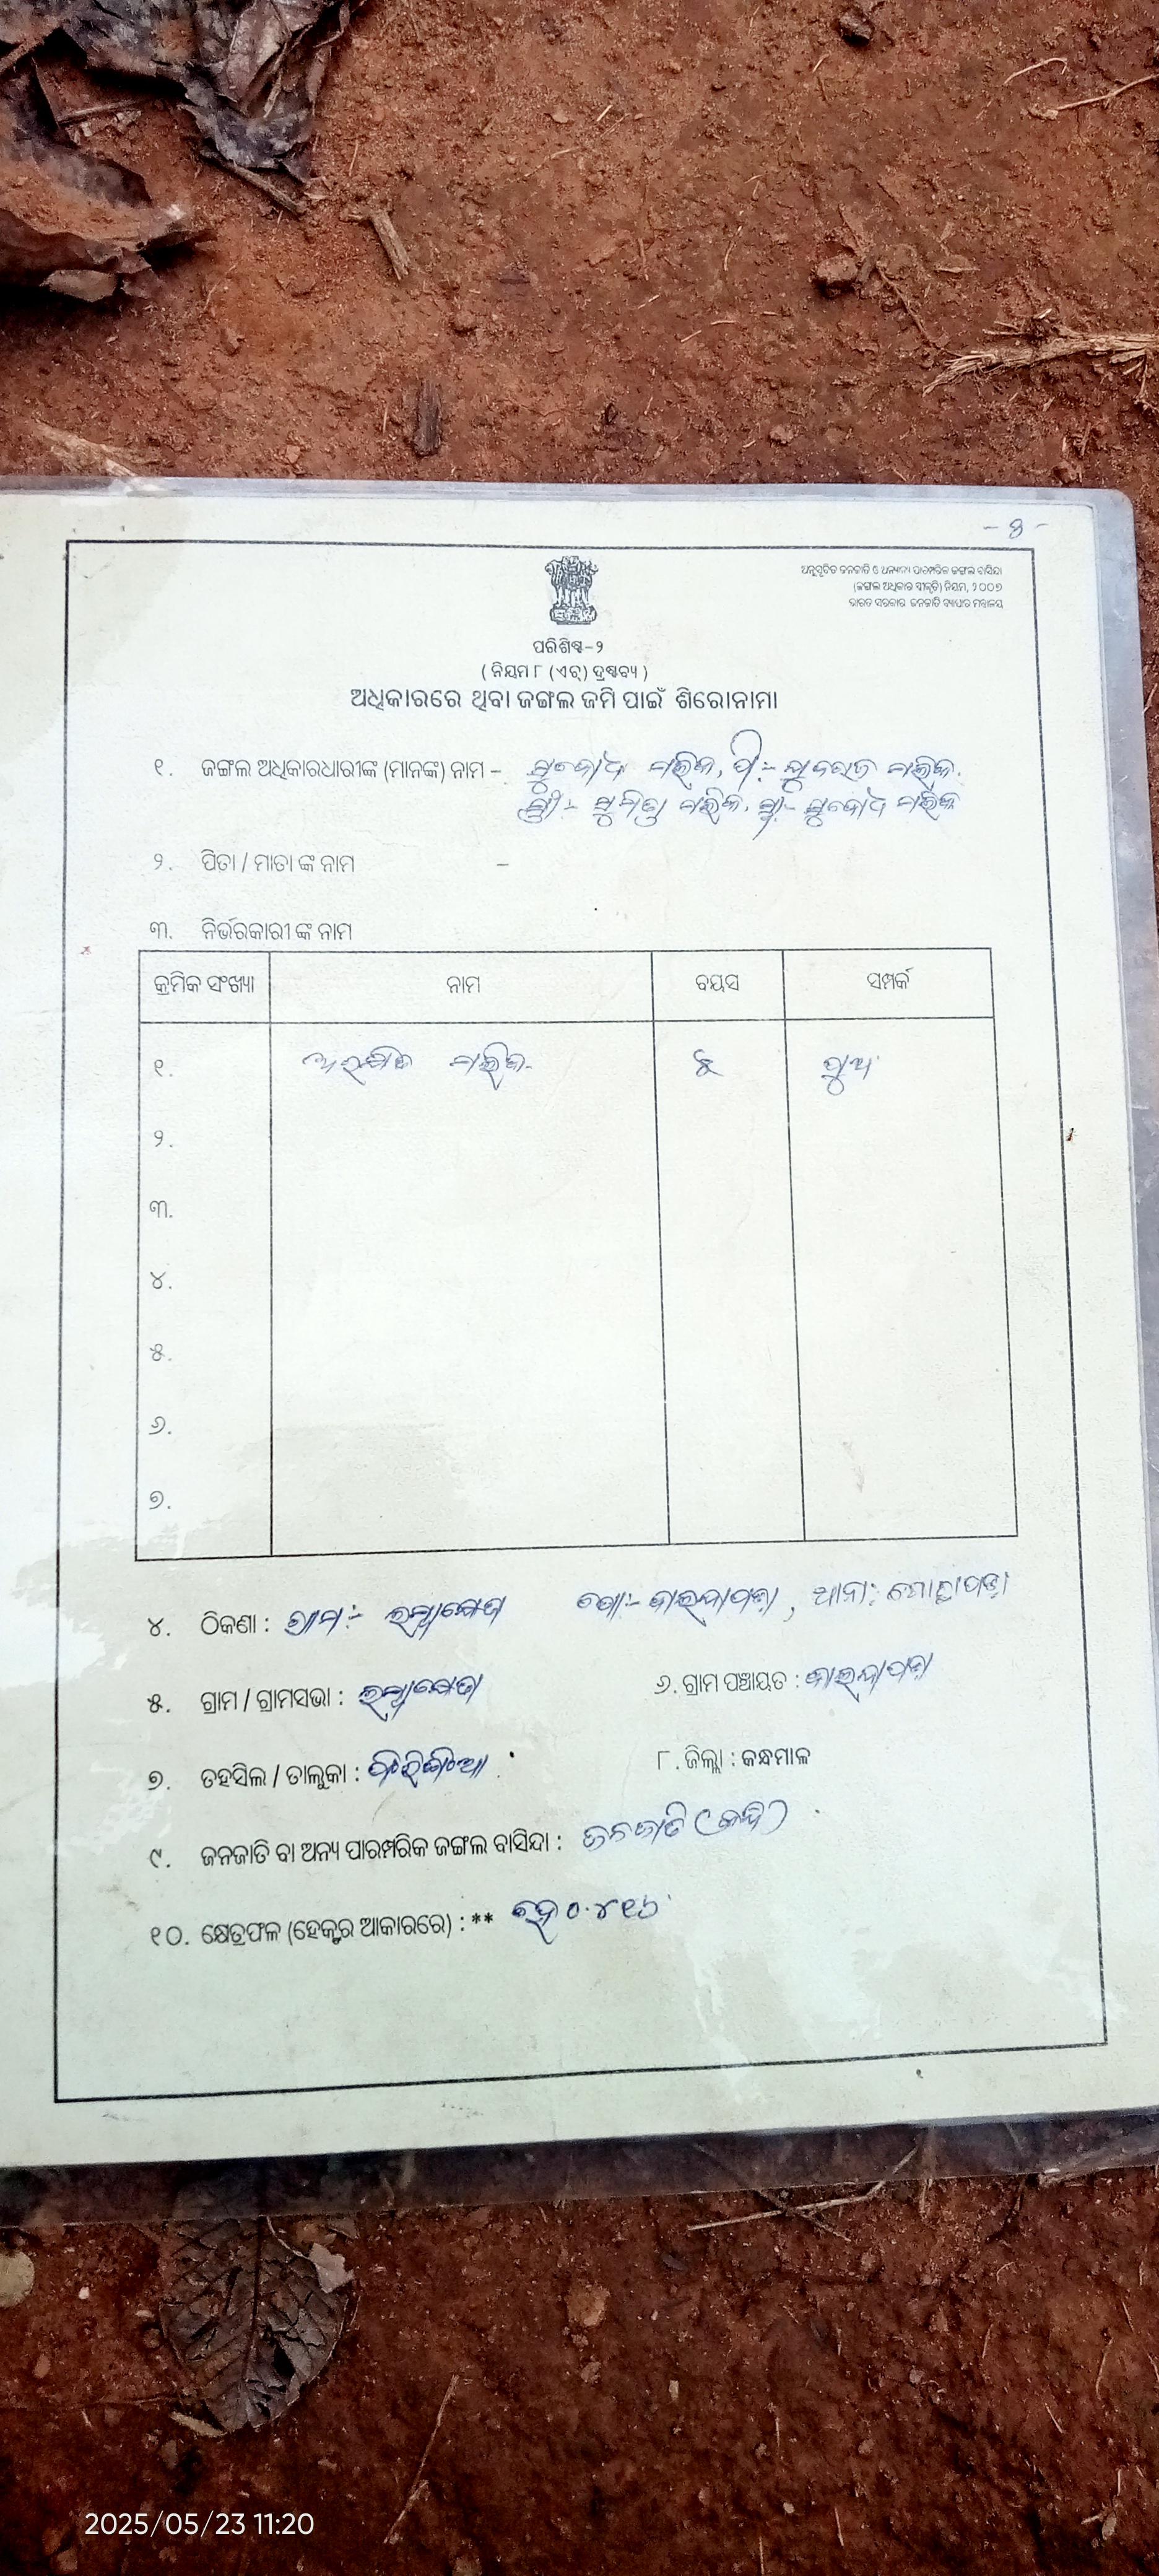 ଅନୁସୂଚିତ ଜନଜାତି ଓ ଅନ୍ୟାନ୍ୟ ପାରମ୍ପରିକ ଜଙ୍ଗଲ ବାସିନ୍ଦା
(ଜଙ୍ଗଲ ଅଧିକାର ସ୍ୱୀକୃତି) ନିୟମ, ୨୦୦୭
ଭାରତ ସରକାର ଜନଜାତି ବ୍ୟାପାର ମନ୍ତ୍ରାଳୟ
ପରିଶିଷ୍ଟ-୨
( ନିୟମ ୮ (ଏଚ୍) ଦ୍ରଷ୍ଟବ୍ୟ )
ଅଧିକାରରେ ଥିବା ଜଙ୍ଗଲ ଜମି ପାଇଁ ଶିରୋନାମା
୧. ଜଙ୍ଗଲ ଅଧିକାରଧାରୀଙ୍କ (ମାନଙ୍କ) ନାମ – ସୁବୋଧ ମଲିକ, ପି:- ମଲିକ.
ସ୍ତ୍ରୀ:- ସୁମିତ୍ରା ମଲିକ, ସ୍ୱା:- ସୁବୋଧ ମଲିକ
୨. ପିତା / ମାତା ଙ୍କ ନାମ –
୩. ନିର୍ଭରକାରୀ ଙ୍କ ନାମ
କ୍ରମିକ ସଂଖ୍ୟା ନାମ ବୟସ ସମ୍ପର୍କ
୧. ମଲିକ ପୁଅ
୨.
୩.
୪.
୫.
୬.
୭.
୪. ଠିକଣା : ଗ୍ରାମ:- ପୋ:- , ଥାନା:
୫. ଗ୍ରାମ / ଗ୍ରାମସଭା : ୬. ଗ୍ରାମ ପଞ୍ଚାୟତ :
୭. ତହସିଲ / ତାଲୁକା : ଫିରିଙ୍ଗିଆ ୮. ଜିଲ୍ଲା : କନ୍ଧମାଳ
୯. ଜନଜାତି ବା ଅନ୍ୟ ପାରମ୍ପରିକ ଜଙ୍ଗଲ ବାସିନ୍ଦା : ଜନଜାତି
୧୦. କ୍ଷେତ୍ରଫଳ (ହେକ୍ଟର ଆକାରରେ) : ** ହେ ୦.୪୧୬
2025/05/23 11:20